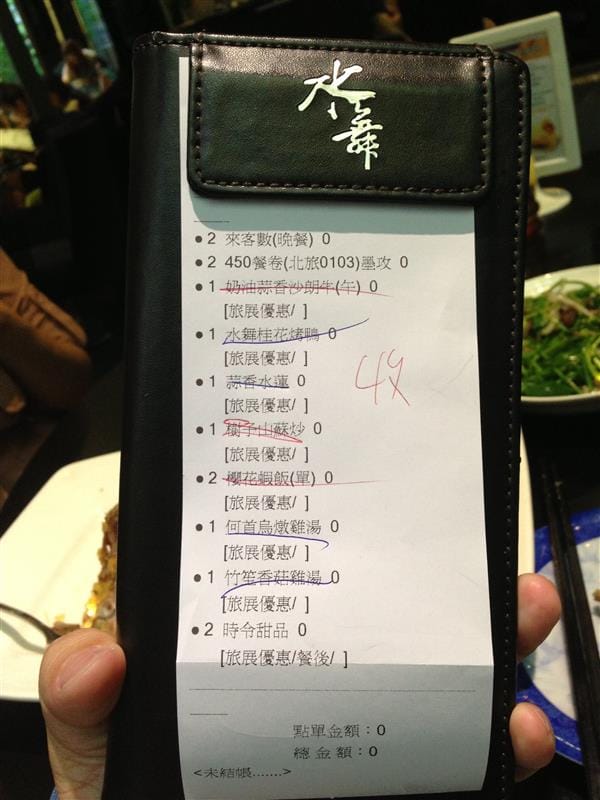 水舞
●2 來客數(晚餐) 0
●2 450餐卷(北旅0103)墨攻 0
●1 奶油蒜香沙朗牛(午) 0
[旅展優惠/ ]
●1 水舞桂花烤鴨 0
[旅展優惠/ ]
●1 蒜香水蓮 0
[旅展優惠/ ]
●1 樹子山蘇炒 0
[旅展優惠/ ]
●2 櫻花蝦飯(單) 0
[旅展優惠/ ]
●1 何首烏燉雞湯 0
[旅展優惠/ ]
●1 竹笙香菇雞湯 0
[旅展優惠/ ]
●2 時令甜品 0
[旅展優惠/餐後/ ]
點單金額：0
總金額：0
<未結帳.......>